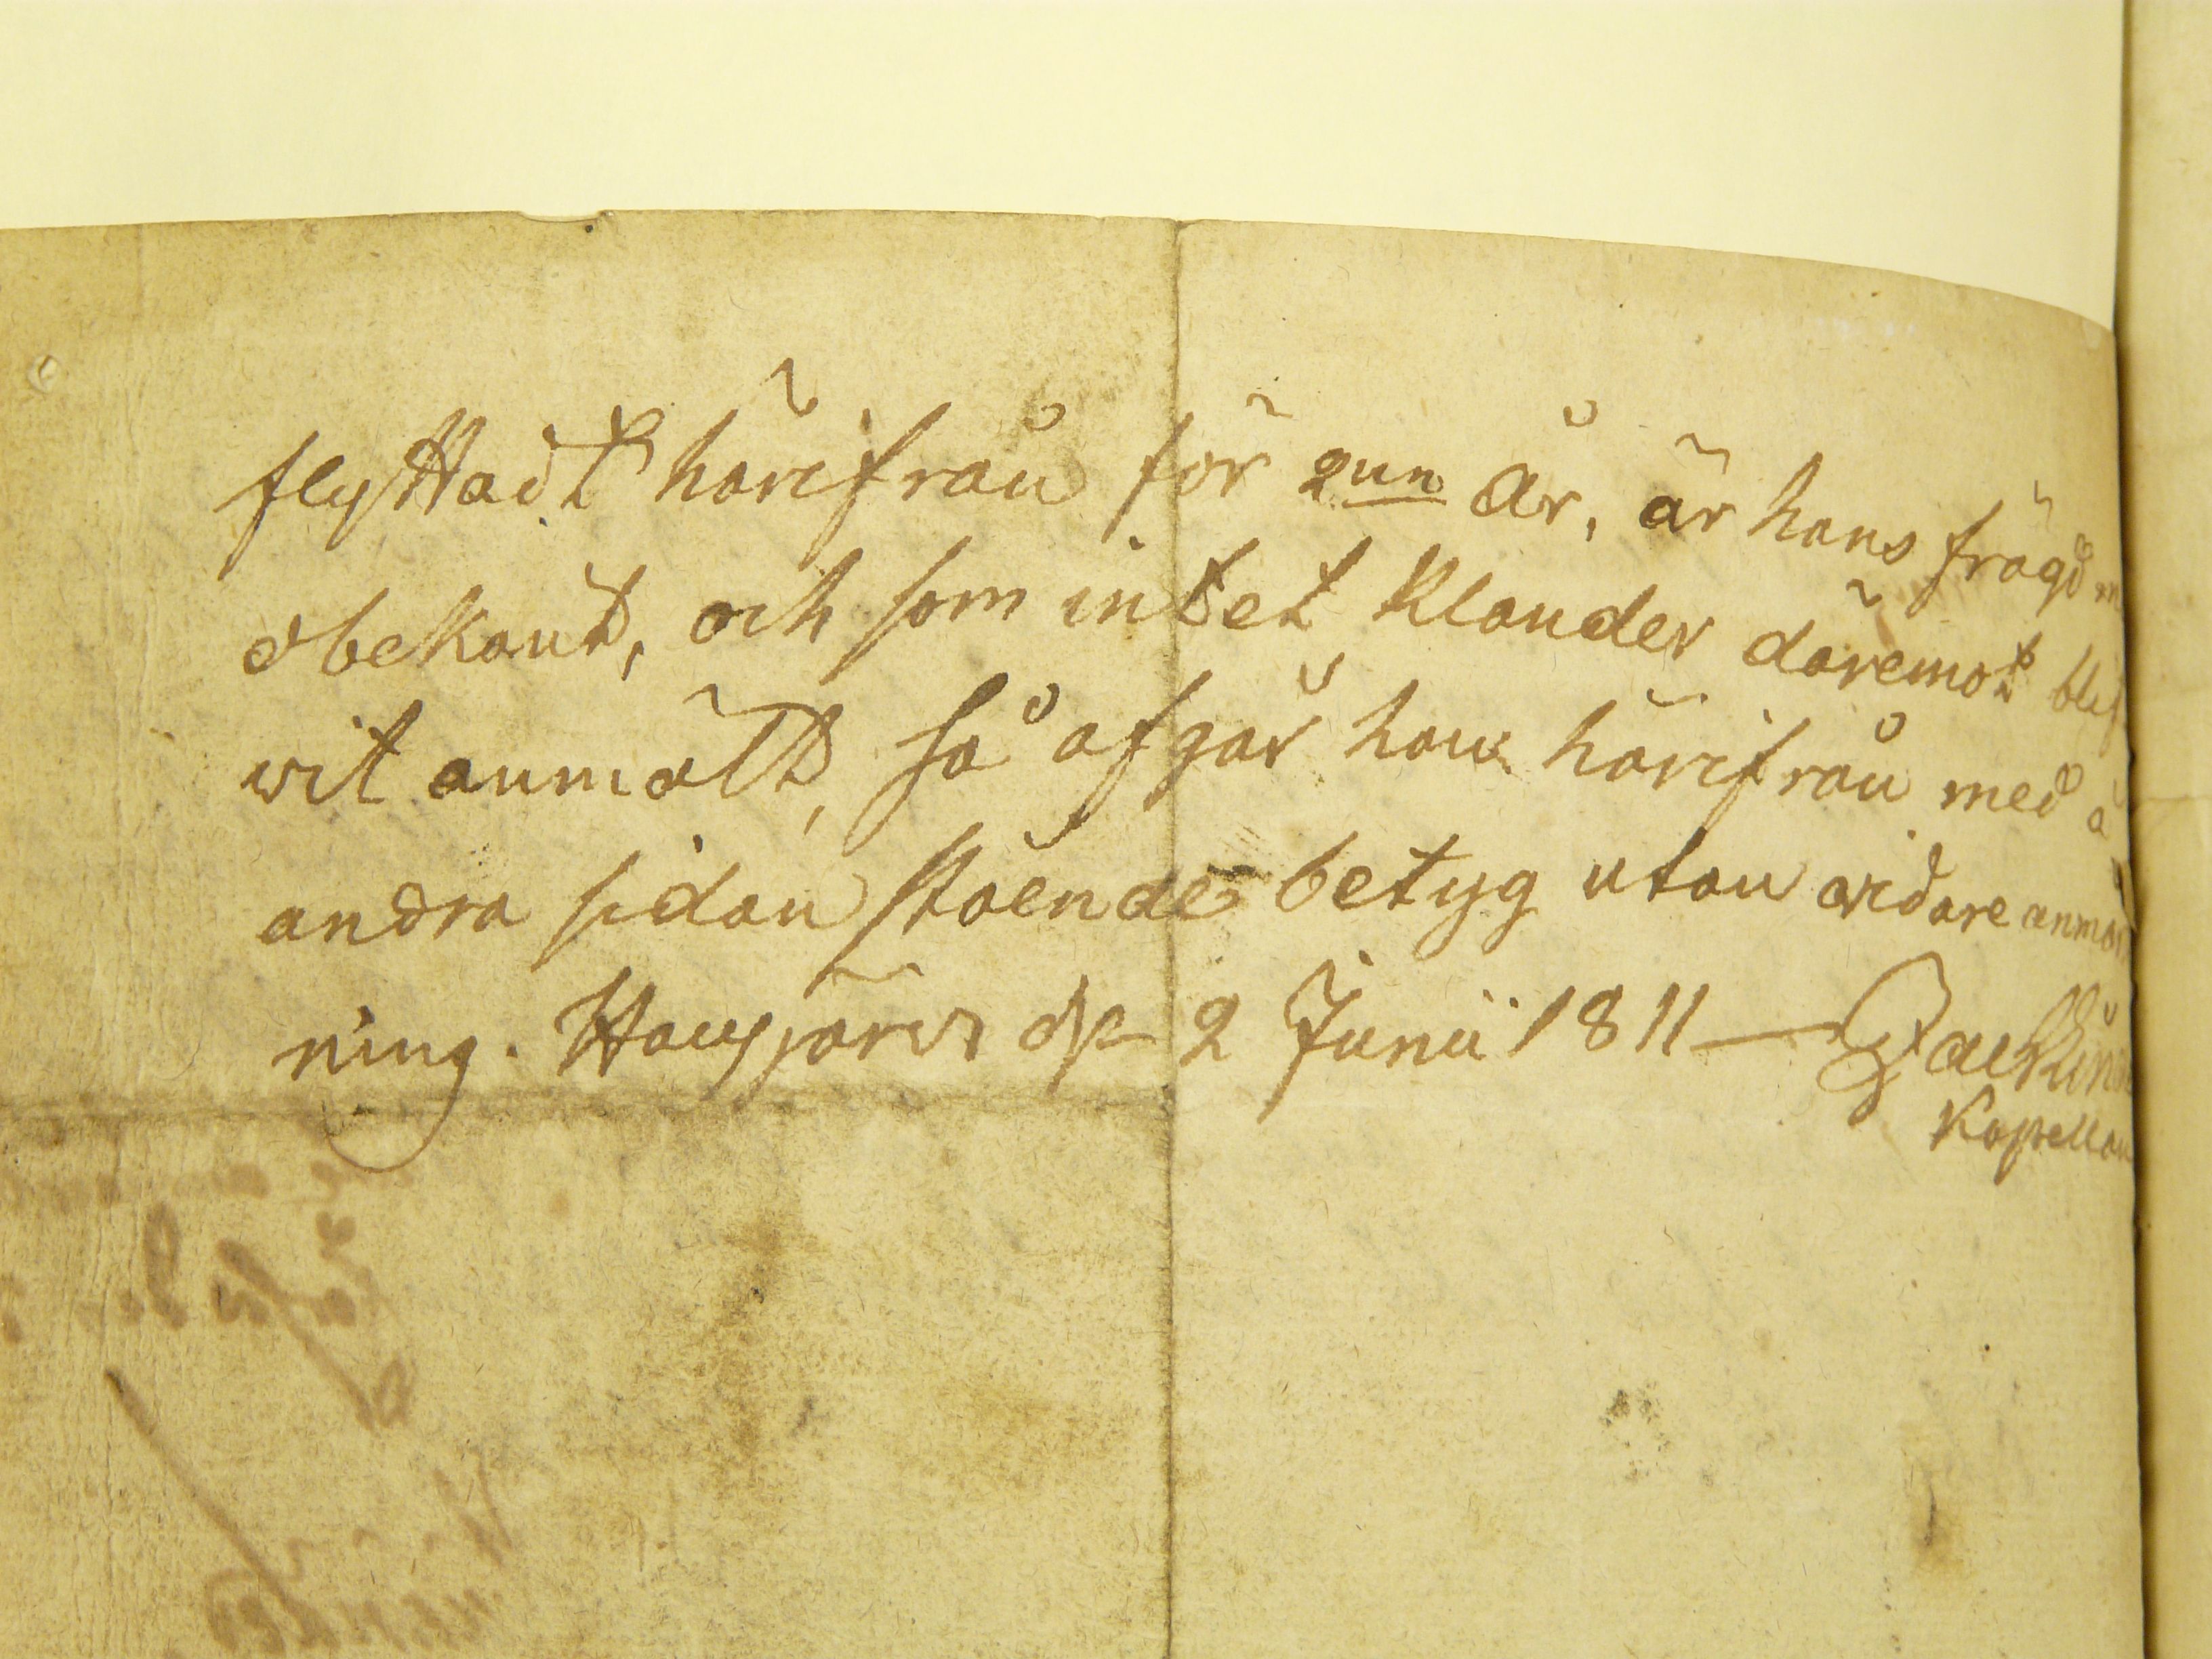 flyttadt härifrån för 2nne År, är hans frägd
obekant, och som intet Klander däremot blif
wit anmält, så afgår han härifrån med å
andra sidan stående betyg utan widare anmär
ning. Hausjärvi d. 2 Junii 1811
Kapellan